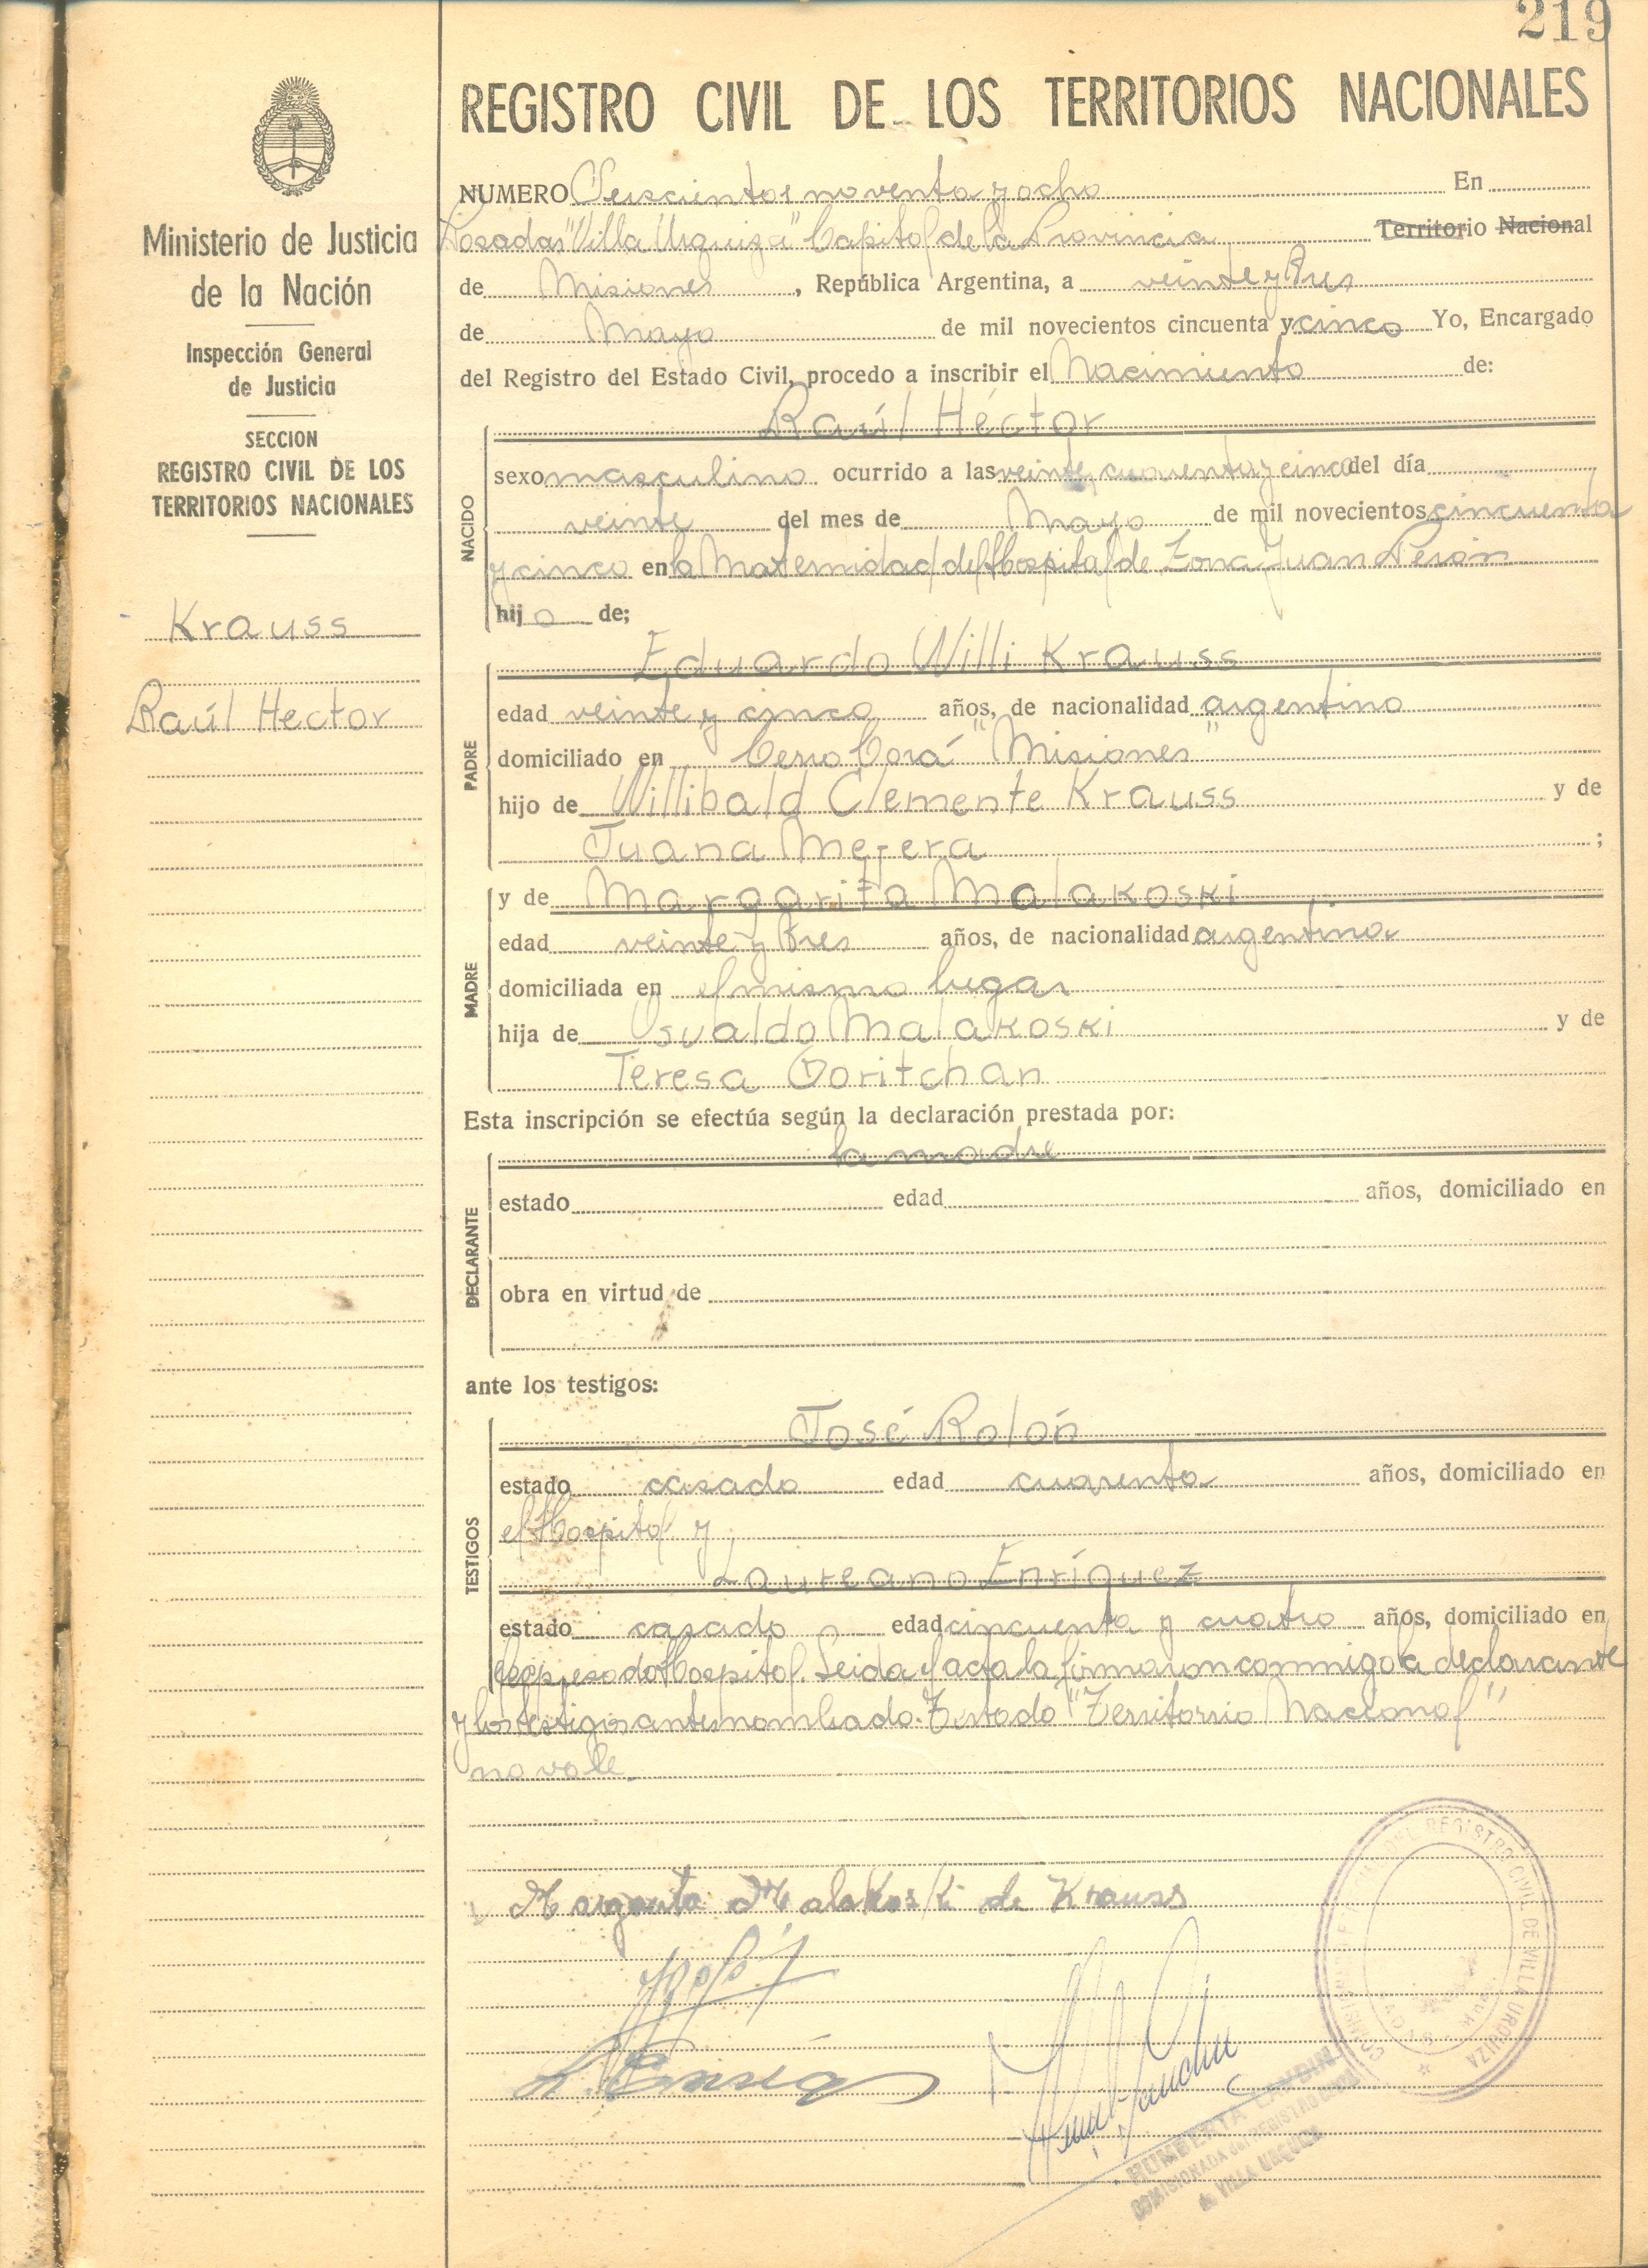 219
Ministerio de Justicia
de la Nación
Inspección General
de Justicia
SECCION
REGISTRO CIVIL DE LOS
TERRITORIOS NACIONALES
Krauss
Raúl Hector
REGISTRO CIVIL DE LOS TERRITORIOS NACIONALES
NUMERO Seiscientos noventa y ocho En
Posadas "Villa Urquiza" Capital de la Provincia Territorio Nacional
de Misiones, República Argentina, a veinte y tres
de Mayo de mil novecientos cincuenta y cinco Yo, Encargado
del Registro del Estado Civil, procedo a inscribir el Nacimiento de:
NACIDO
Raúl Héctor
sexo masculino ocurrido a las veinte, cuarenta y cinco del día
veinte del mes de Mayo de mil novecientos cincuenta
y cinco en la Maternidad del Hospital de Zona Juan Perón
hijo de;
PADRE
Eduardo Willi Krauss
edad veinte y cinco años, de nacionalidad argentino
domiciliado en "Cerro Corá" "Misiones"
hijo de Willibald Clemente Krauss y de
Juana Mejera ;
MADRE
y de Margarita Malakoski
edad veinte y tres años, de nacionalidad argentina
domiciliada en el mismo lugar
hija de Osvaldo Malakoski y de
Teresa Boritchan
Esta inscripción se efectúa según la declaración prestada por:
DECLARANTE
la madre
estado edad años, domiciliado en
obra en virtud de
ante los testigos:
TESTIGOS
José Rolón
estado casado edad cuarenta años, domiciliado en
el Hospital y
Laureano Enríquez
estado casado edad cincuenta y cuatro años, domiciliado en
el expresado Hospital. Leida el acta la firmaron conmigo la declarante
y los testigos antes nombrado. Testado "Territorio Nacional"
no vale.
Margarita Malakoski de Krauss
DEL REGISTRO CIVIL DE VILLA URQUIZA
COMISIONADA del REGISTRO CIVIL
de VILLA URQUIZA